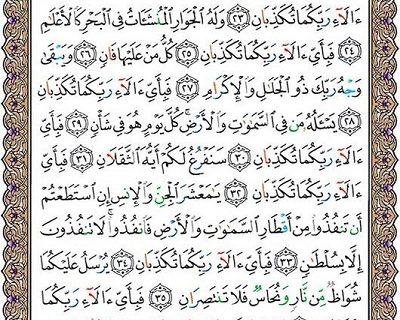 ءَالَآءِ رَبِّكُمَا تُكَذِّبَانِ ٢٣ وَلَهُ ٱلْجَوَارِ ٱلْمُنشَـَٔاتُ فِى ٱلْبَحْرِ كَٱلْأَعْلَـٰمِ
٢٤ فَبِأَىِّ ءَالَآءِ رَبِّكُمَا تُكَذِّبَانِ ٢٥ كُلُّ مَنْ عَلَيْهَا فَانٍ ٢٦ وَيَبْقَىٰ
وَجْهُ رَبِّكَ ذُو ٱلْجَلَـٰلِ وَٱلْإِكْرَامِ ٢٧ فَبِأَىِّ ءَالَآءِ رَبِّكُمَا تُكَذِّبَانِ
٢٨ يَسْـَٔلُهُۥ مَن فِى ٱلسَّمَـٰوَٰتِ وَٱلْأَرْضِ ۚ كُلَّ يَوْمٍ هُوَ فِى شَأْنٍ ٢٩ فَبِأَىِّ
ءَالَآءِ رَبِّكُمَا تُكَذِّبَانِ ٣٠ سَنَفْرُغُ لَكُمْ أَيُّهَ ٱلثَّقَلَانِ ٣١ فَبِأَىِّ
ءَالَآءِ رَبِّكُمَا تُكَذِّبَانِ ٣٢ يَـٰمَعْشَرَ ٱلْجِنِّ وَٱلْإِنسِ إِنِ ٱسْتَطَعْتُمْ
أَن تَنفُذُوا۟ مِنْ أَقْطَارِ ٱلسَّمَـٰوَٰتِ وَٱلْأَرْضِ فَٱنفُذُوا۟ ۚ لَا تَنفُذُونَ
إِلَّا بِسُلْطَـٰنٍ ٣٣ فَبِأَىِّ ءَالَآءِ رَبِّكُمَا تُكَذِّبَانِ ٣٤ يُرْسَلُ عَلَيْكُمَا
شُوَاظٌ مِّن نَّارٍ وَنُحَاسٌ فَلَا تَنتَصِرَانِ ٣٥ فَبِأَىِّ ءَالَآءِ رَبِّكُمَا